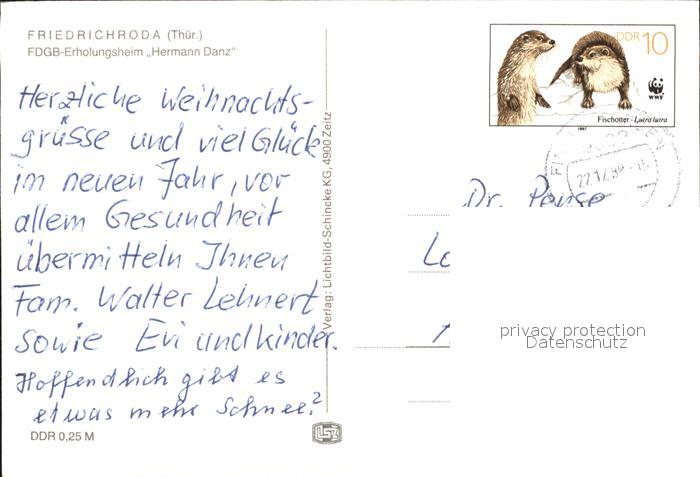 FRIEDRICHRODA (Thür.)
FDGB-Erholungsheim „Hermann Danz"
Herzliche Weihnachts-
grüsse und viel Glück
im neuen Jahr, vor
allem Gesundheit
übermitteln Ihnen
Fam. Walter Lehnert
sowie Evi und Kinder.
Hoffendlich gibt es
etwas mehr Schnee?
DDR 0,25 M
Verlag: Lichtbild-Schincke KG, 4900 Zeitz
DDR 10
WWF
Fischotter · Lutra lutra
1987
22.12.88
Dr. Panse
privacy protection
Datenschutz